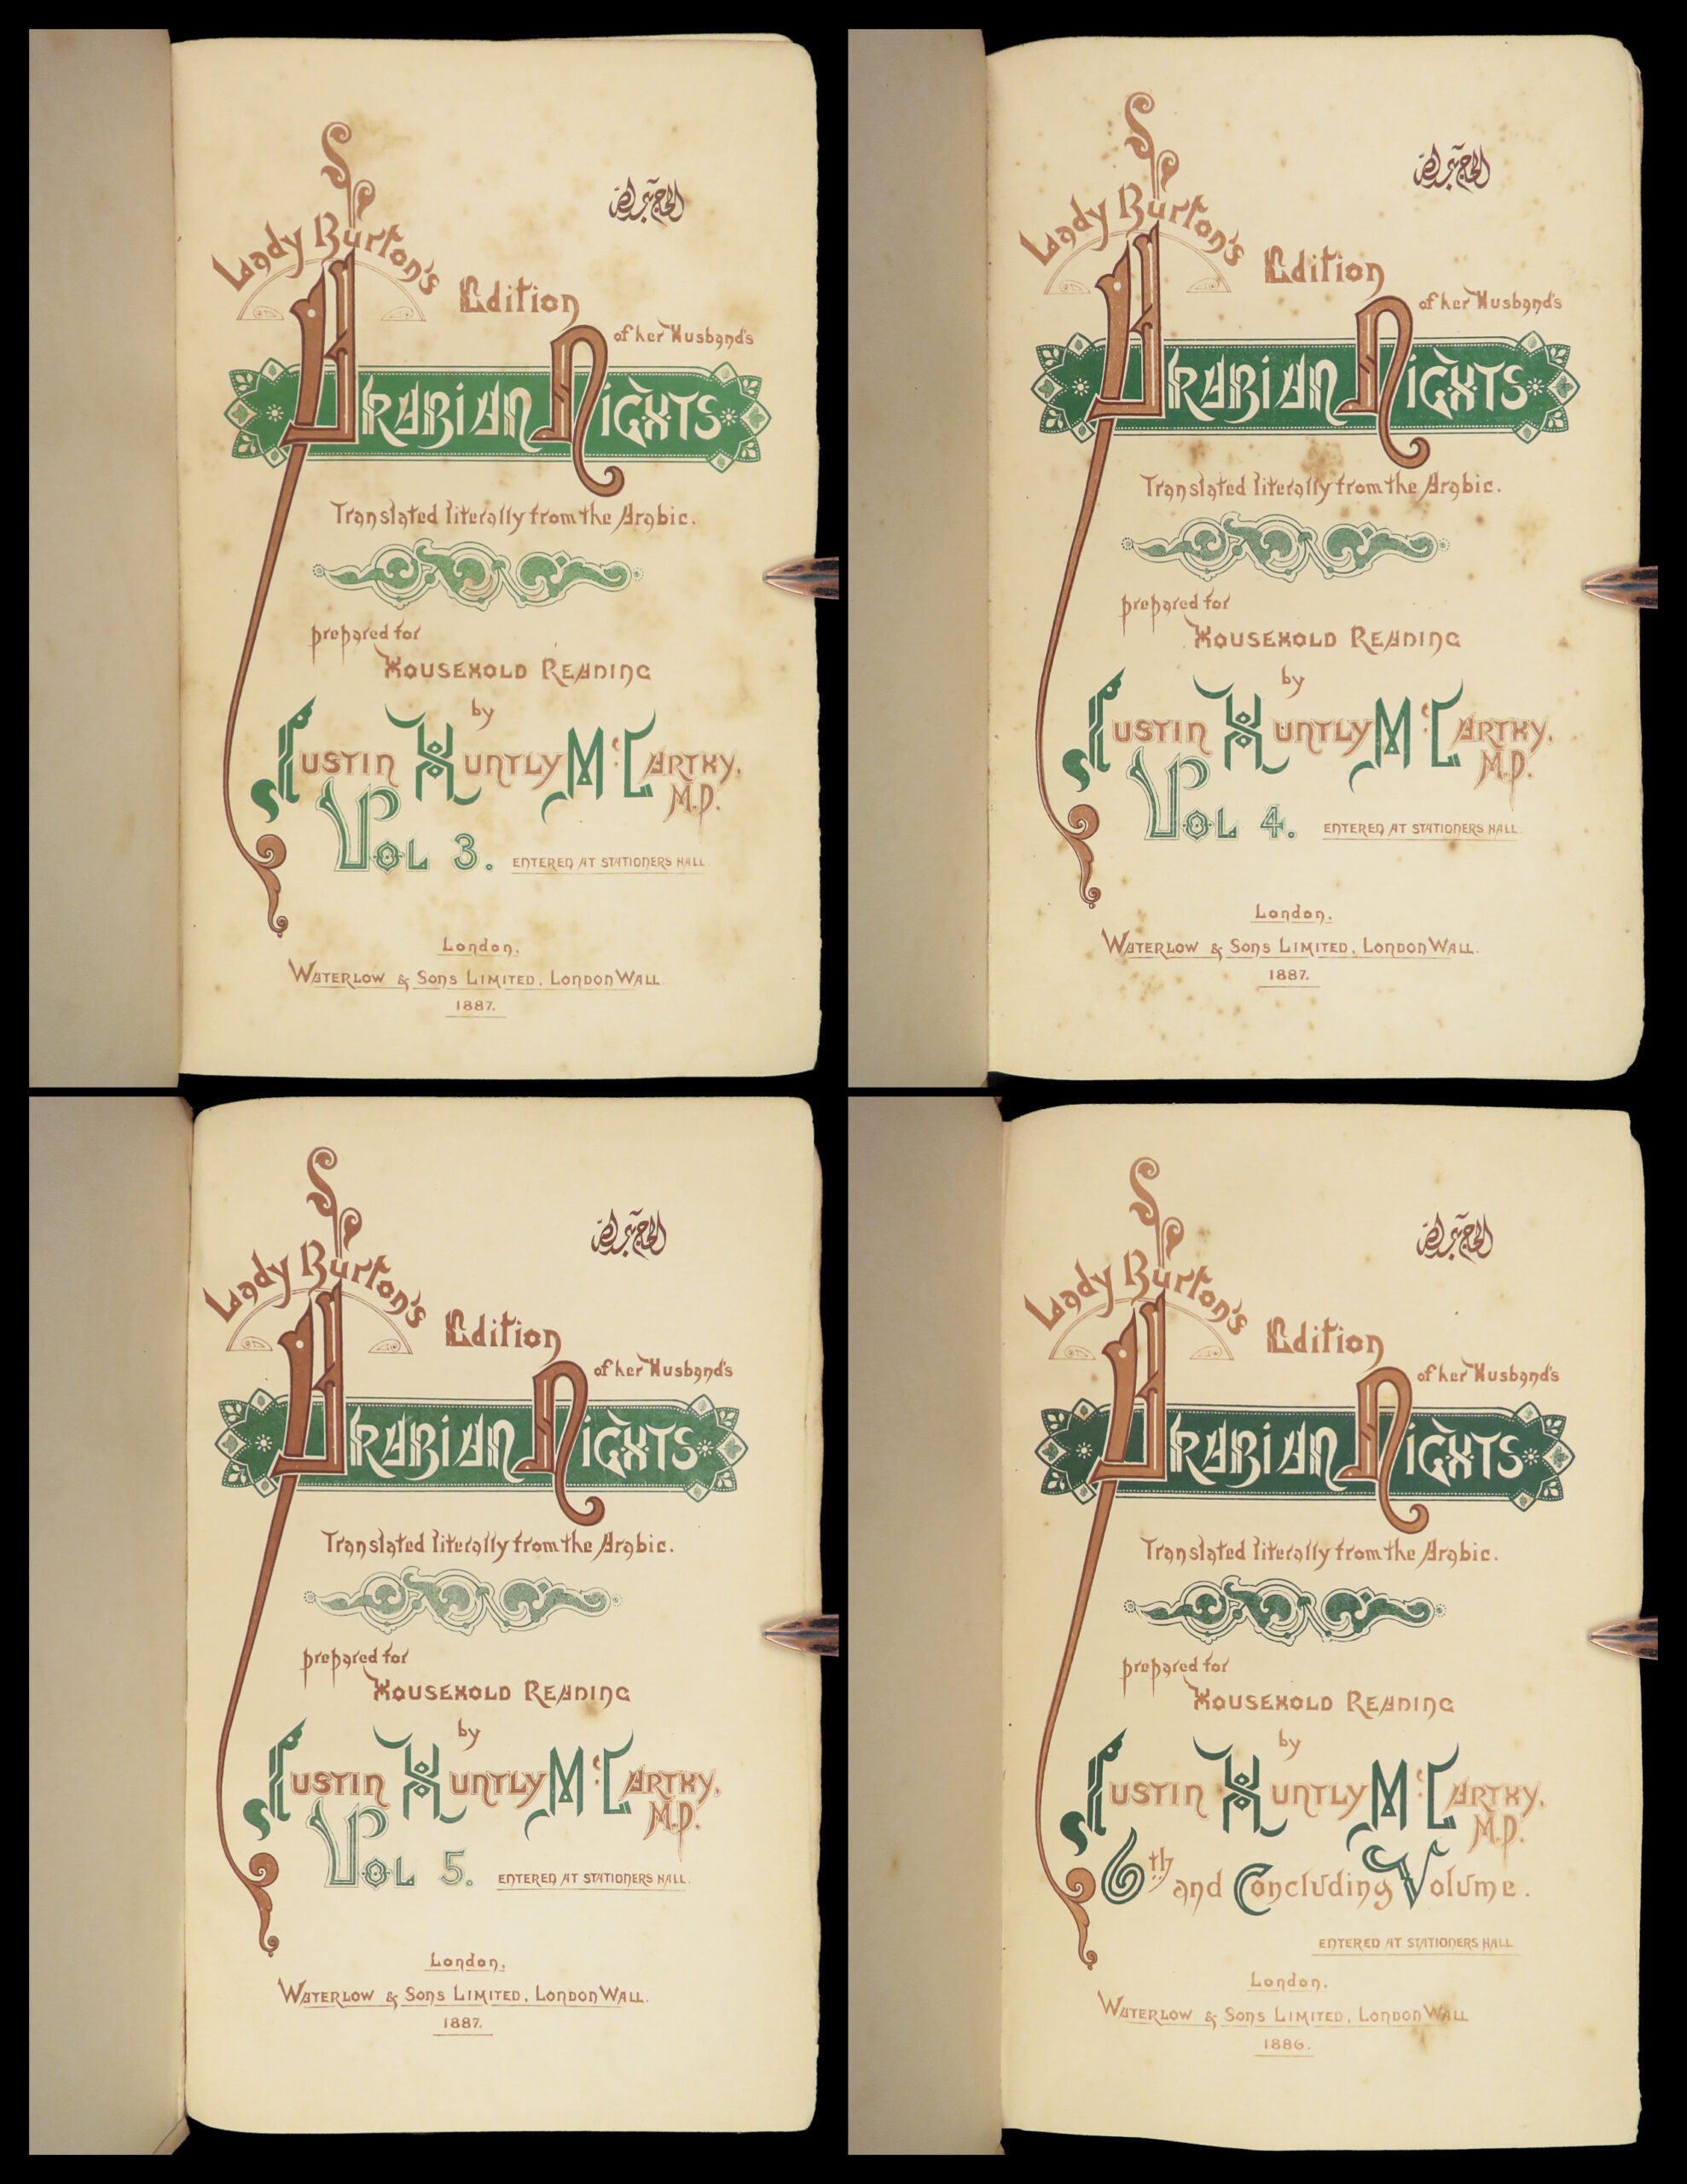 الحاج عبدالله
Lady Burton's
Edition
of her Husband's
ARABIAN NIGHTS
Translated literally from the Arabic.
prepared for
HOUSEHOLD READING
by
JUSTIN HUNTLY McCARTHY,
M.P.
VOL 3.
ENTERED AT STATIONERS HALL.
London.
WATERLOW & SONS LIMITED, LONDON WALL
1887.
الحاج عبدالله
Lady Burton's
Edition
of her Husband's
ARABIAN NIGHTS
Translated literally from the Arabic.
prepared for
HOUSEHOLD READING
by
JUSTIN HUNTLY McCARTHY,
M.P.
VOL 4.
ENTERED AT STATIONERS HALL.
London.
WATERLOW & SONS LIMITED, LONDON WALL.
1887.
الحاج عبدالله
Lady Burton's
Edition
of her Husband's
ARABIAN NIGHTS
Translated literally from the Arabic.
prepared for
HOUSEHOLD READING
by
JUSTIN HUNTLY McCARTHY,
M.P.
VOL 5.
ENTERED AT STATIONERS HALL.
London.
WATERLOW & SONS LIMITED, LONDON WALL.
1887.
الحاج عبدالله
Lady Burton's
Edition
of her Husband's
ARABIAN NIGHTS
Translated literally from the Arabic.
prepared for
HOUSEHOLD READING
by
JUSTIN HUNTLY McCARTHY,
M.P.
6th and Concluding Volume.
ENTERED AT STATIONERS HALL
London.
WATERLOW & SONS LIMITED, LONDON WALL
1886.